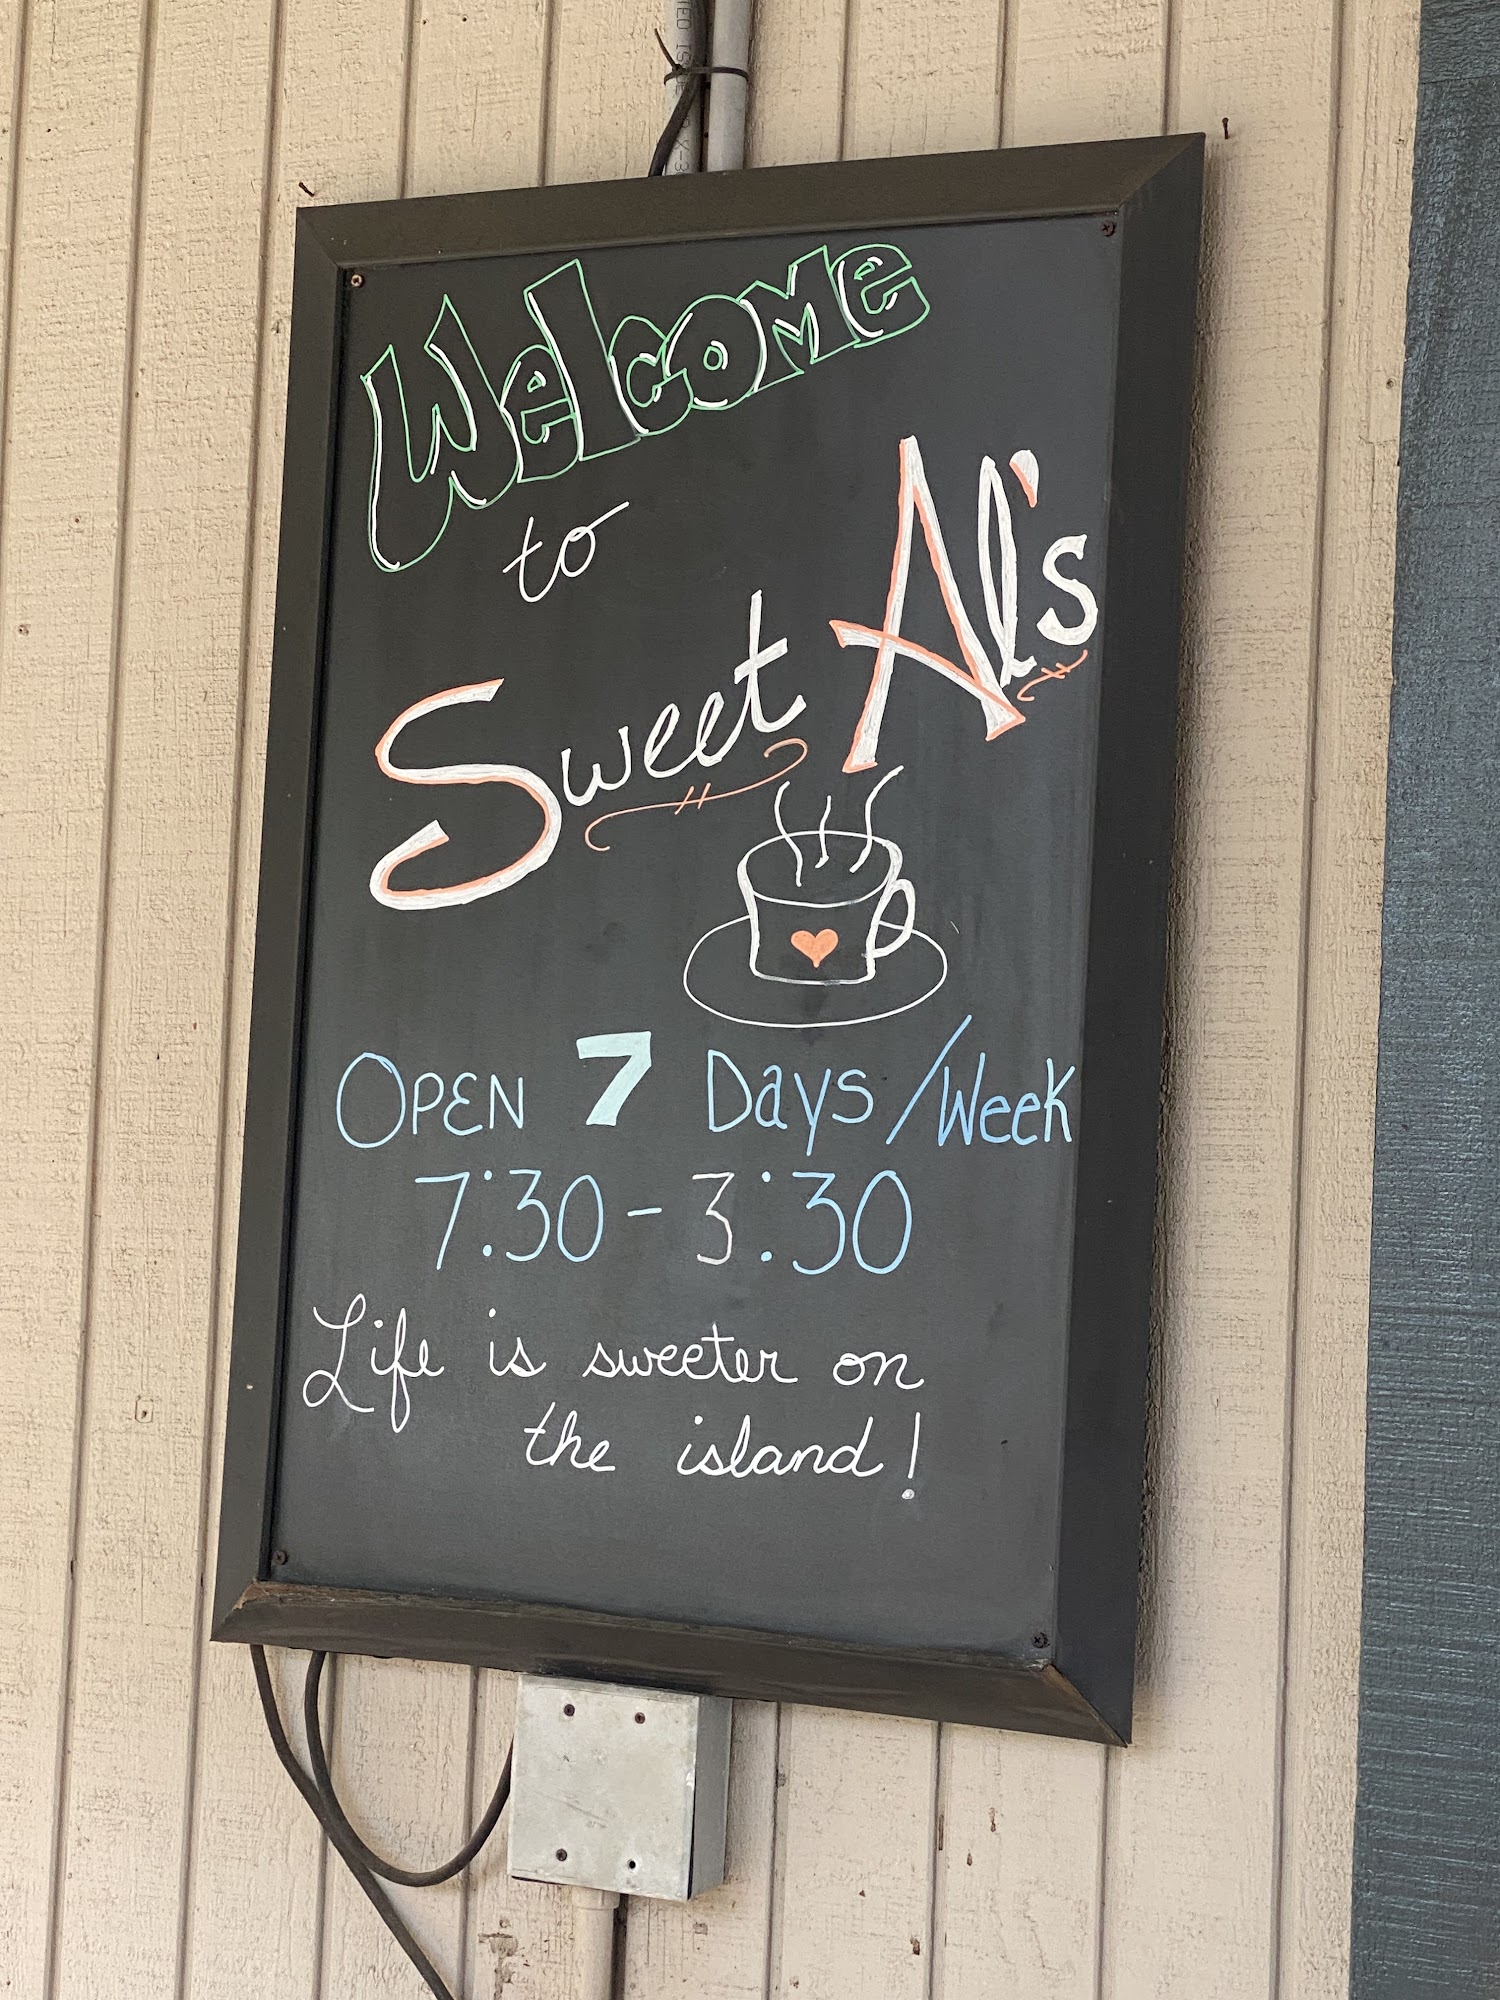 Welcome
to
Sweet Al's
OPEN 7 Days/Week
7:30-3:30
Life is sweeter on
the island!